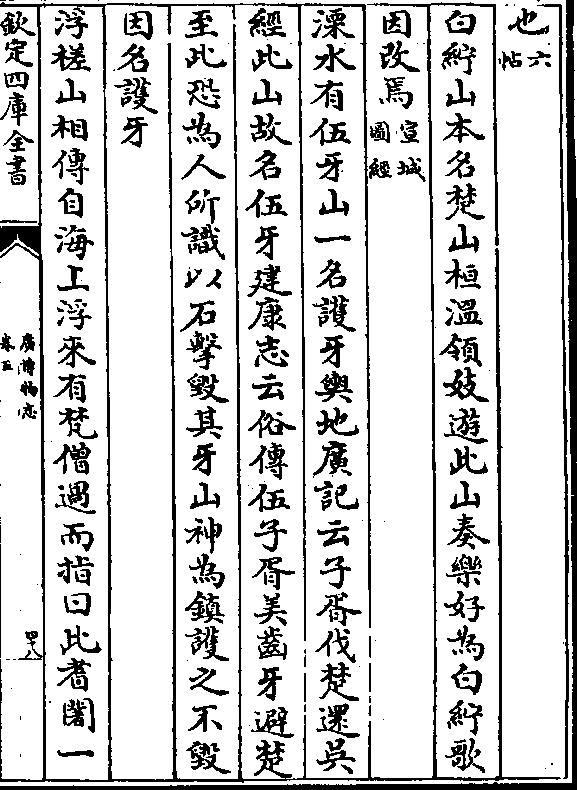 也六帖
白紵山本名楚山桓溫領妓遊此山奏樂好為白紵歌
因改焉宣城圖經
溧水有伍牙山一名護牙輿地廣記云子胥伐楚還吳
經此山故名伍牙建康志云俗傳伍子胥美齒牙避楚
至此恐為人所識以石擊毀其牙山神為鎮護之不毀
因名護牙
浮槎山相傳自海上浮來有梵僧過而指曰此耆闍一
欽定四庫全書
廣博物志
卷五
四十八